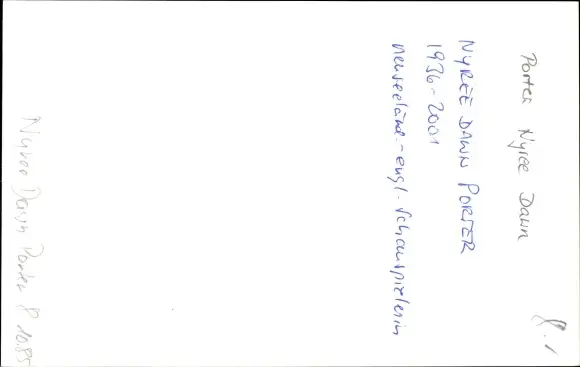 Porter Nyree Dawn
8.1
NYREE DAWN PORTER
1936-2001
neuseeländ.-engl. Schauspielerin
Nyree Dawn Porter 8 10.85